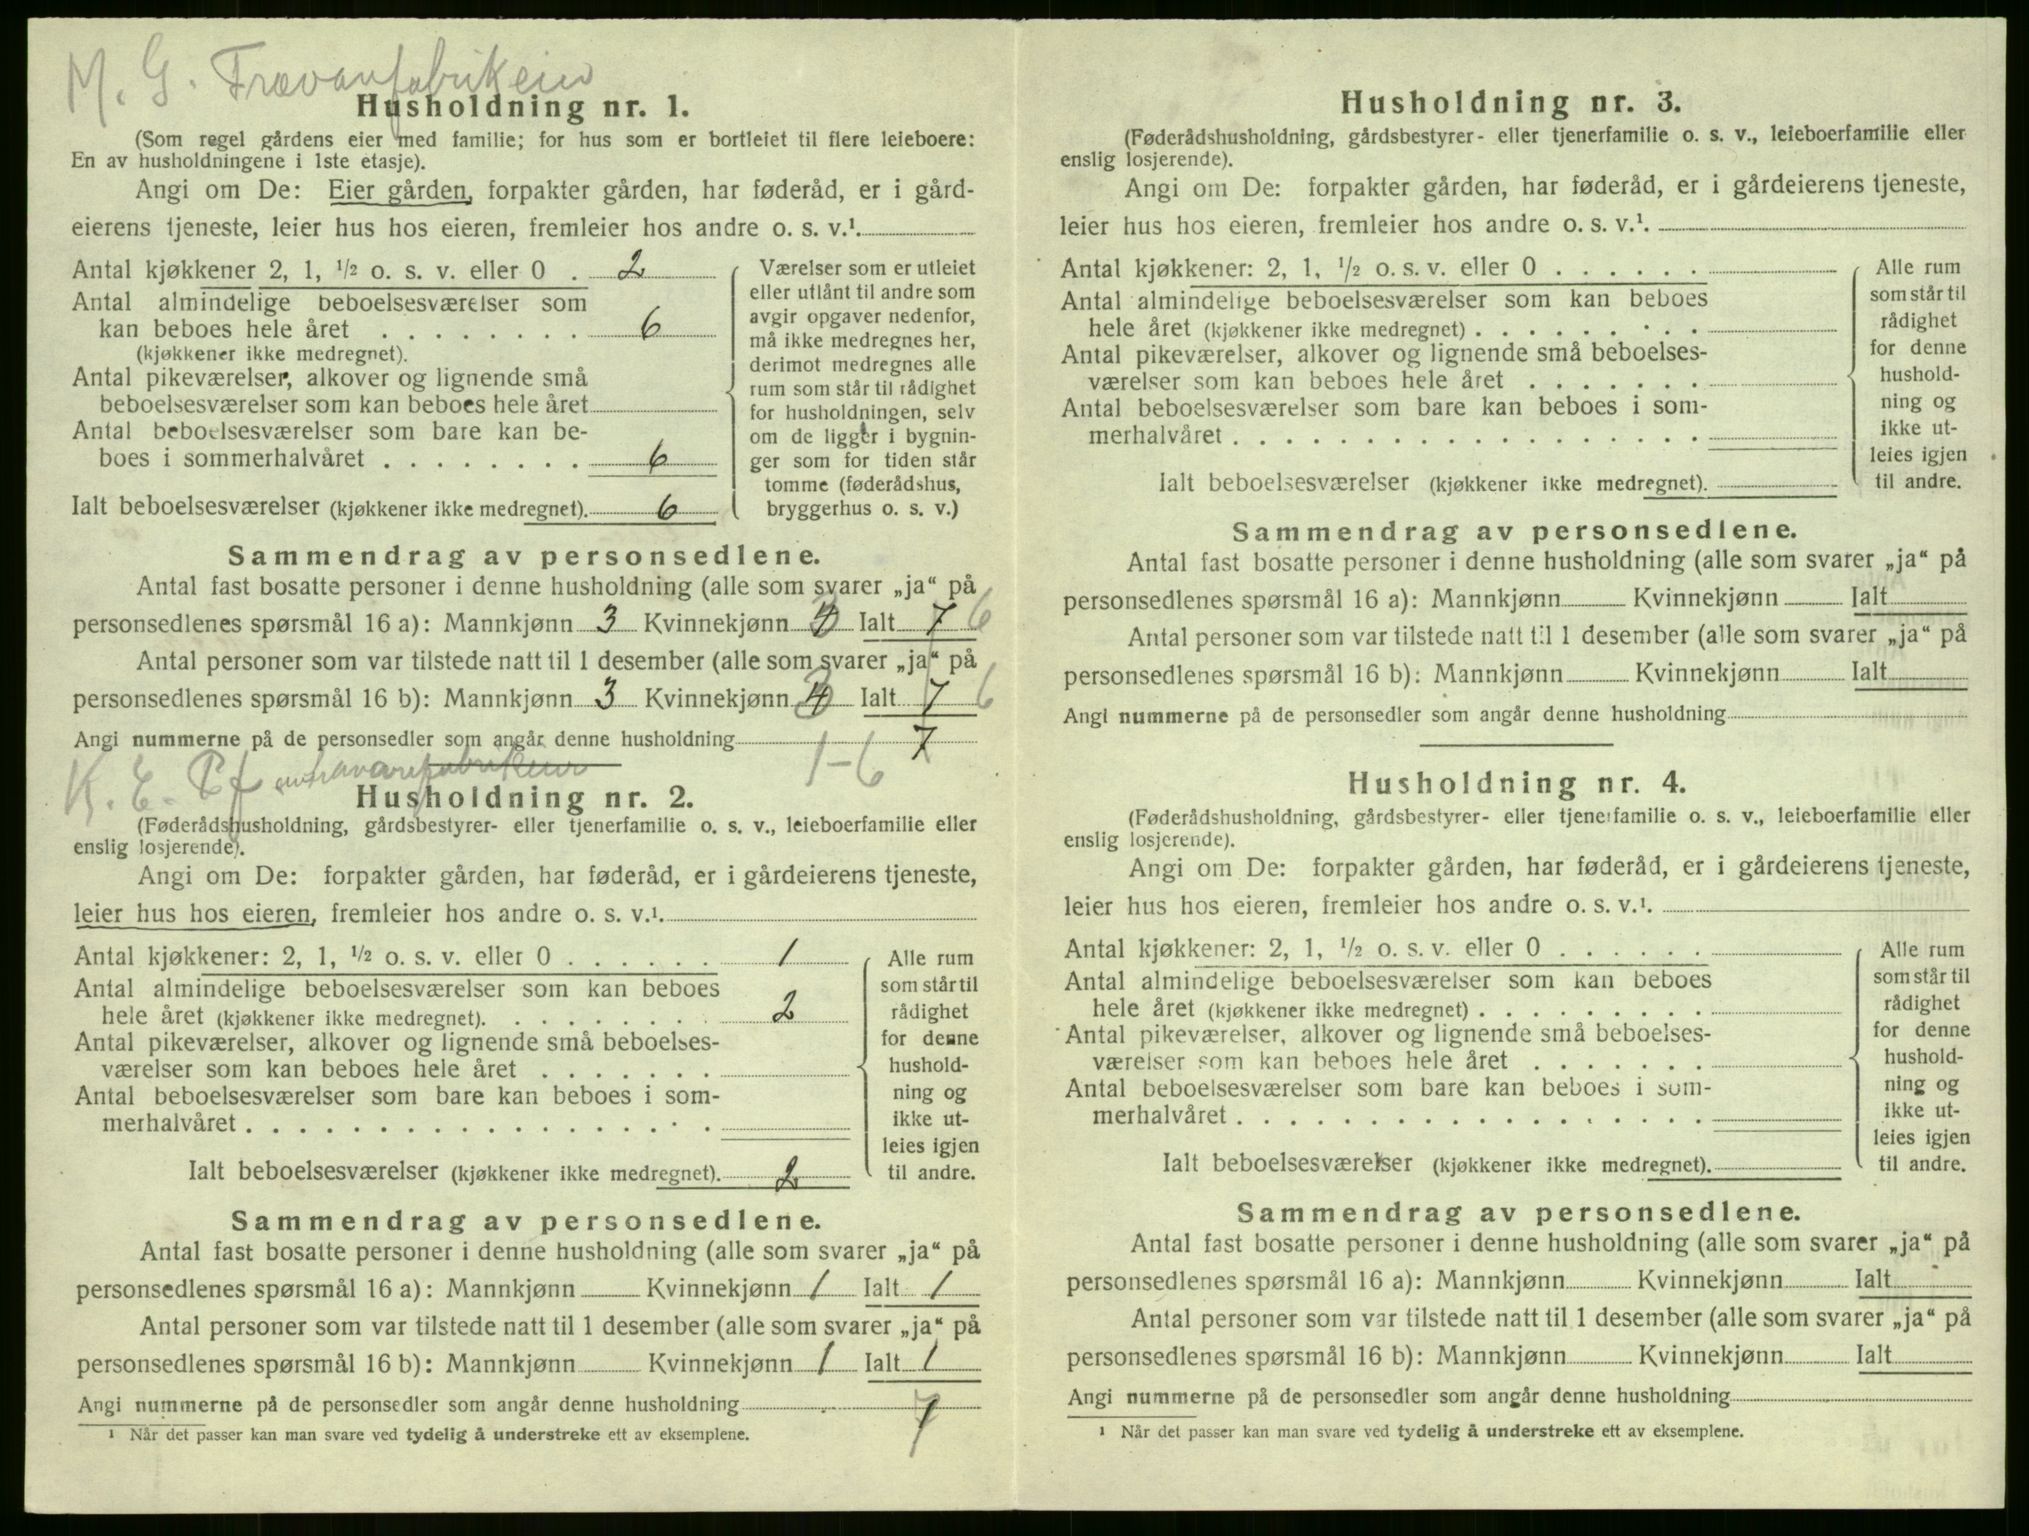 M. G. Trævarefabrikeier
Husholdning nr. 1.
(Som regel gårdens eier med familie; for hus som er bortleiet til flere leieboere:
En av husholdningene i 1ste etasje).
Angi om De: Eier gården, forpakter gården, har føderåd, er i gård-
eierens tjeneste, leier hus hos eieren, fremleier hos andre o. s. v.¹.
Antal kjøkkener 2, 1, ½ o. s. v. eller 0 . 2
Antal almindelige beboelsesværelser som
kan beboes hele året . . . . . . . . 6
(kjøkkener ikke medregnet).
Antal pikeværelser, alkover og lignende små
beboelsesværelser som kan beboes hele året
Antal beboelsesværelser som bare kan be-
boes i sommerhalvåret . . . . . . . . 6
Ialt beboelsesværelser (kjøkkener ikke medregnet). 6
Værelser som er utleiet
eller utlånt til andre som
avgir opgaver nedenfor,
må ikke medregnes her,
derimot medregnes alle
rum som står til rådighet
for husholdningen, selv
om de ligger i bygnin-
ger som for tiden står
tomme (føderådshus,
bryggerhus o. s. v.)
Sammendrag av personsedlene.
Antal fast bosatte personer i denne husholdning (alle som svarer „ja“ på
personsedlenes spørsmål 16 a): Mannkjønn 3 Kvinnekjønn 4 3 Ialt 7 6
Antal personer som var tilstede natt til 1 desember (alle som svarer „ja“ på
personsedlenes spørsmål 16 b): Mannkjønn 3 Kvinnekjønn 4 3 Ialt 7 6
Angi nummerne på de personsedler som angår denne husholdning 7
1-6
K. E.
Husholdning nr. 2.
(Føderådshusholdning, gårdsbestyrer- eller tjenerfamilie o. s. v., leieboerfamilie eller
enslig losjerende).
Angi om De: forpakter gården, har føderåd, er i gårdeierens tjeneste,
leier hus hos eieren, fremleier hos andre o. s. v.¹.
Antal kjøkkener: 2, 1, ½ o. s. v. eller 0 . . . . . . 1
Antal almindelige beboelsesværelser som kan beboes
hele året (kjøkkener ikke medregnet). . . . . . . . . 2
Antal pikeværelser, alkover og lignende små beboelses-
værelser som kan beboes hele året . . . . . . .
Antal beboelsesværelser som bare kan beboes i som-
merhalvåret . . . . . . . . . . . . . . . . . .
Ialt beboelsesværelser (kjøkkener ikke medregnet). 2
Alle rum
som står til
rådighet
for denne
hushold-
ning og
ikke ut-
leies igjen
til andre.
Sammendrag av personsedlene.
Antal fast bosatte personer i denne husholdning (alle som svarer „ja“ på
personsedlenes spørsmål 16 a): Mannkjønn Kvinnekjønn 1 Ialt 1
Antal personer som var tilstede natt til 1 desember (alle som svarer „ja“ på
personsedlenes spørsmål 16 b): Mannkjønn Kvinnekjønn 1 Ialt 1
Angi nummerne på de personsedler som angår denne husholdning 1 7
¹ Når det passer kan man svare ved tydelig å understreke ett av eksemplene.
Husholdning nr. 3.
(Føderådshusholdning, gårdsbestyrer- eller tjenerfamilie o. s. v., leieboerfamilie eller
enslig losjerende).
Angi om De: forpakter gården, har føderåd, er i gårdeierens tjeneste,
leier hus hos eieren, fremleier hos andre o. s. v.¹.
Antal kjøkkener: 2, 1, ½ o. s. v. eller 0 . . . . . .
Antal almindelige beboelsesværelser som kan beboes
hele året (kjøkkener ikke medregnet) . . . . . . . . .
Antal pikeværelser, alkover og lignende små beboelses-
værelser som kan beboes hele året . . . . . . .
Antal beboelsesværelser som bare kan beboes i som-
merhalvåret . . . . . . . . . . . . . . . . . .
Ialt beboelsesværelser (kjøkkener ikke medregnet).
Alle rum
som står til
rådighet
for denne
hushold-
ning og
ikke ut-
leies igjen
til andre.
Sammendrag av personsedlene.
Antal fast bosatte personer i denne husholdning (alle som svarer „ja“ på
personsedlenes spørsmål 16 a): Mannkjønn Kvinnekjønn Ialt
Antal personer som var tilstede natt til 1 desember (alle som svarer „ja“ på
personsedlenes spørsmål 16 b): Mannkjønn Kvinnekjønn Ialt
Angi nummerne på de personsedler som angår denne husholdning
Husholdning nr. 4.
(Føderådshusholdning, gårdsbestyrer- eller tjenerfamilie o. s. v., leieboerfamilie eller
enslig losjerende).
Angi om De: forpakter gården, har føderåd, er i gårdeierens tjeneste,
leier hus hos eieren, fremleier hos andre o. s. v.¹.
Antal kjøkkener: 2, 1, ½ o. s. v. eller 0 . . . . . .
Antal almindelige beboelsesværelser som kan beboes
hele året (kjøkkener ikke medregnet) . . . . . . . . .
Antal pikeværelser, alkover og lignende små beboelses-
værelser som kan beboes hele året . . . . . . .
Antal beboelsesværelser som bare kan beboes i som-
merhalvåret . . . . . . . . . . . . . . . . . .
Ialt beboelsesværelser (kjøkkener ikke medregnet).
Alle rum
som står til
rådighet
for denne
hushold-
ning og
ikke ut-
leies igjen
til andre.
Sammendrag av personsedlene.
Antal fast bosatte personer i denne husholdning (alle som svarer „ja“ på
personsedlenes spørsmål 16 a): Mannkjønn Kvinnekjønn Ialt
Antal personer som var tilstede natt til 1 desember (alle som svarer „ja“ på
personsedlenes spørsmål 16 b): Mannkjønn Kvinnekjønn Ialt
Angi nummerne på de personsedler som angår denne husholdning
¹ Når det passer kan man svare ved tydelig å understreke ett av eksemplene.